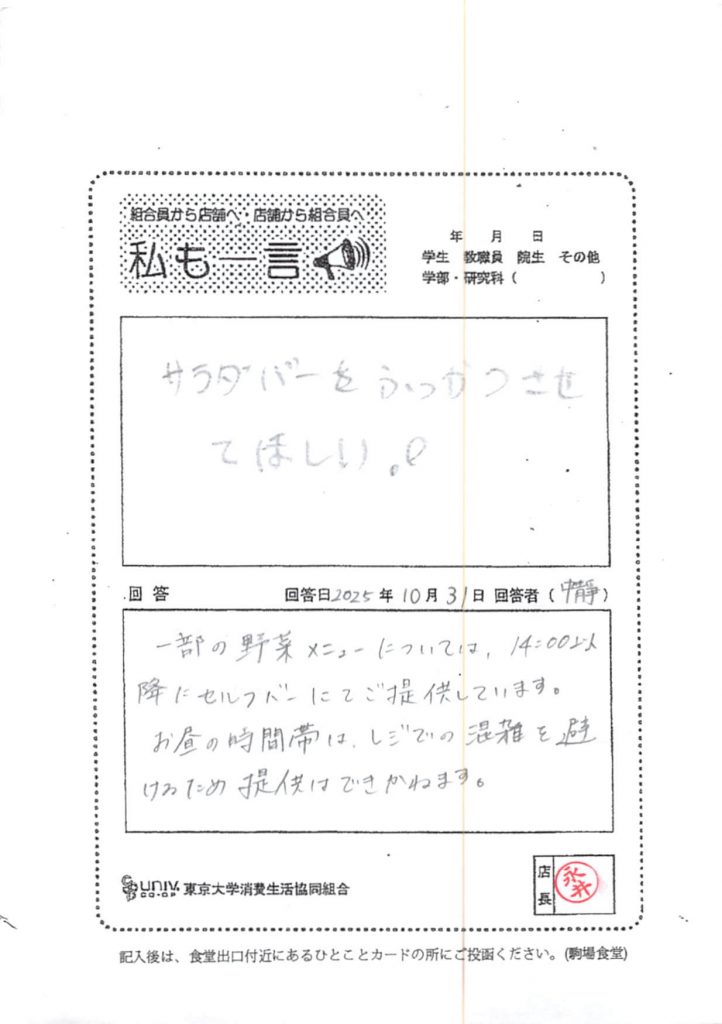 組合員から店舗へ・店舗から組合員へ
私も一言
年 月 日
学生 教職員 院生 その他
学部・研究科( )
サラダバーをふっかつさせ
てほしい。
回答 回答日2025年10月31日 回答者(中靜)
一部の野菜メニューについては、14:00以
降にセルフバーにてご提供しています。
お昼の時間帯は、レジでの混雑を避
けるため提供はできかねます。
UNIV.
CO-OP
東京大学消費生活協同組合
店長
記入後は、食堂出口付近にあるひとことカードの所にご投函ください。(駒場食堂)